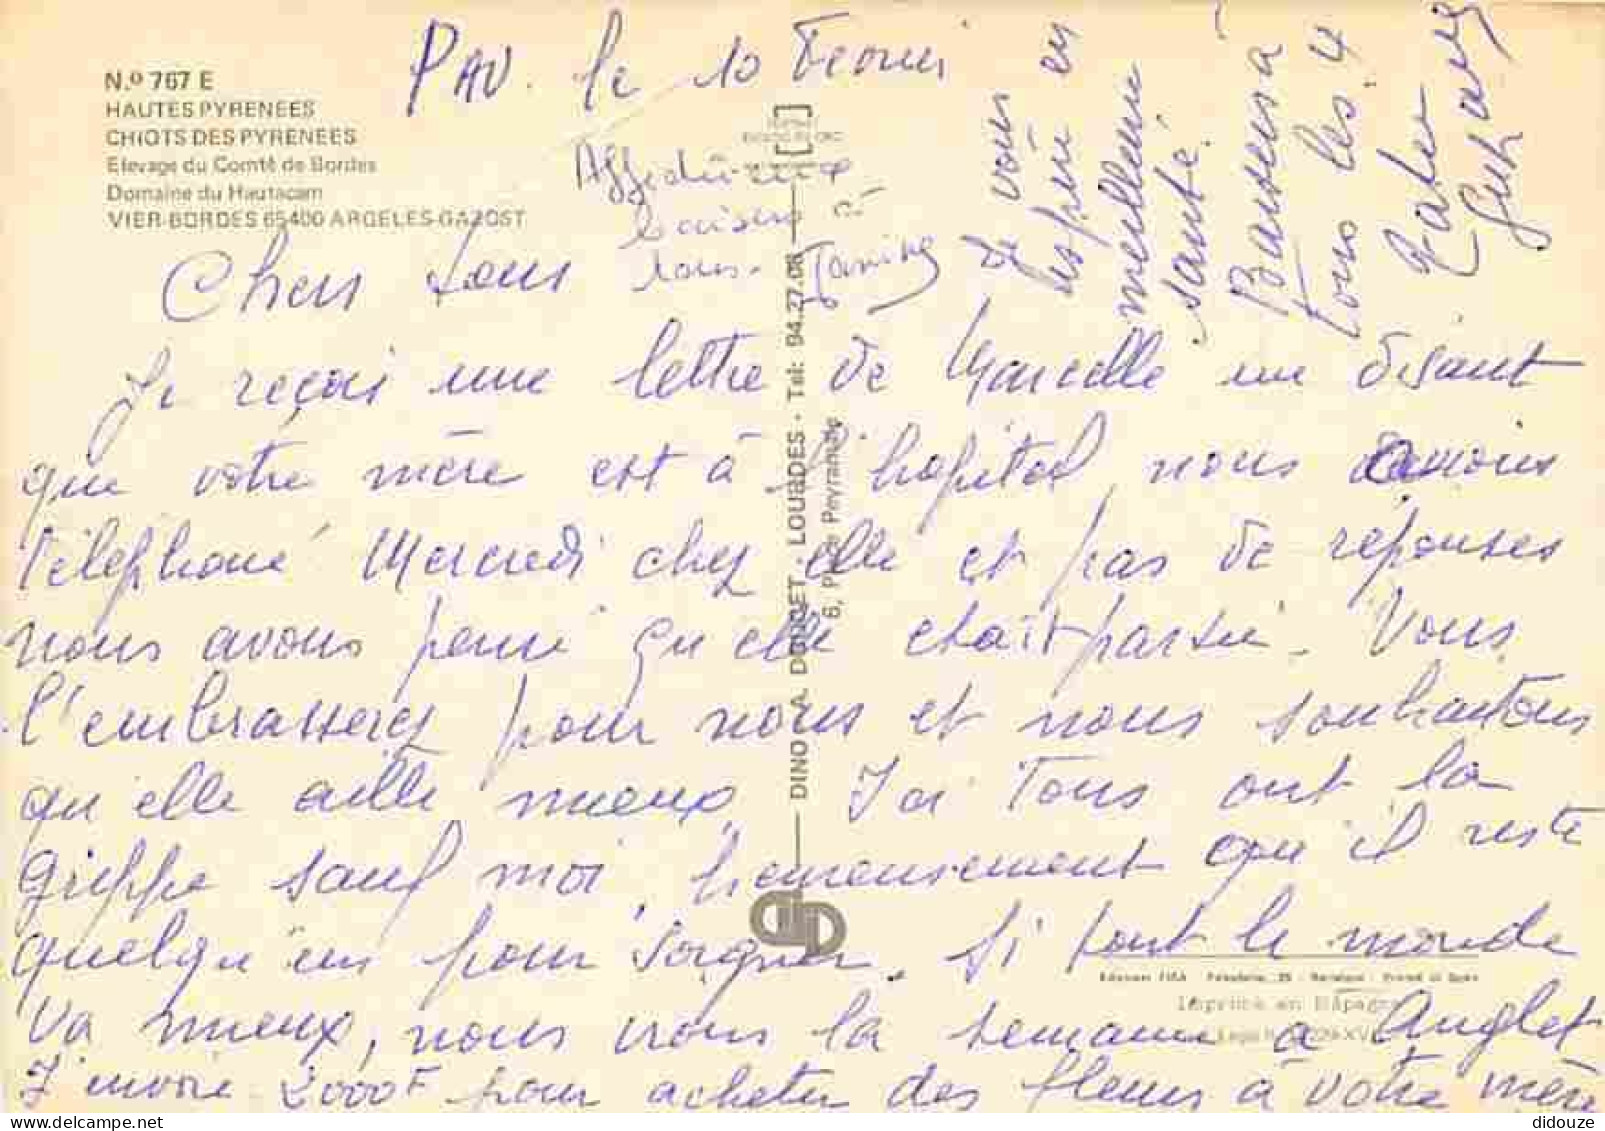 N.º 767 E
HAUTES PYRENEES
CHIOTS DES PYRENEES
Elevage du Comté de Bordes
Domaine du Hautacam
VIER-BORDES 65400 ARGELES-GAZOST
PAU. le 10 Fevrier
Affectueux
baisers à
tous. Janine
Je vous
espère en
meilleure
santé.
Baisers à
tous les 4
Chers tous
Je reçois une lettre de Marcelle me disant
que votre mère est à l'hopital, nous avions
téléphoné Mercredi chez elle et pas de réponses
nous avons pensé qu'elle était partie. Vous
l'embrasserez pour nous et nous souhaitons
qu'elle aille mieux. Ici Tous ont la
grippe sauf moi, heureusement qu'il reste
quelqu'un pour soigner. Si tout le monde
va mieux, nous irons la semaine à Anglet
J'envoie 2000F pour acheter des fleurs à votre mère
DINO A DORET - LOURDES - Tél: 94.27.08
6, Place Peyramale
Imprimé en Espagne
delcampe.net
didouze